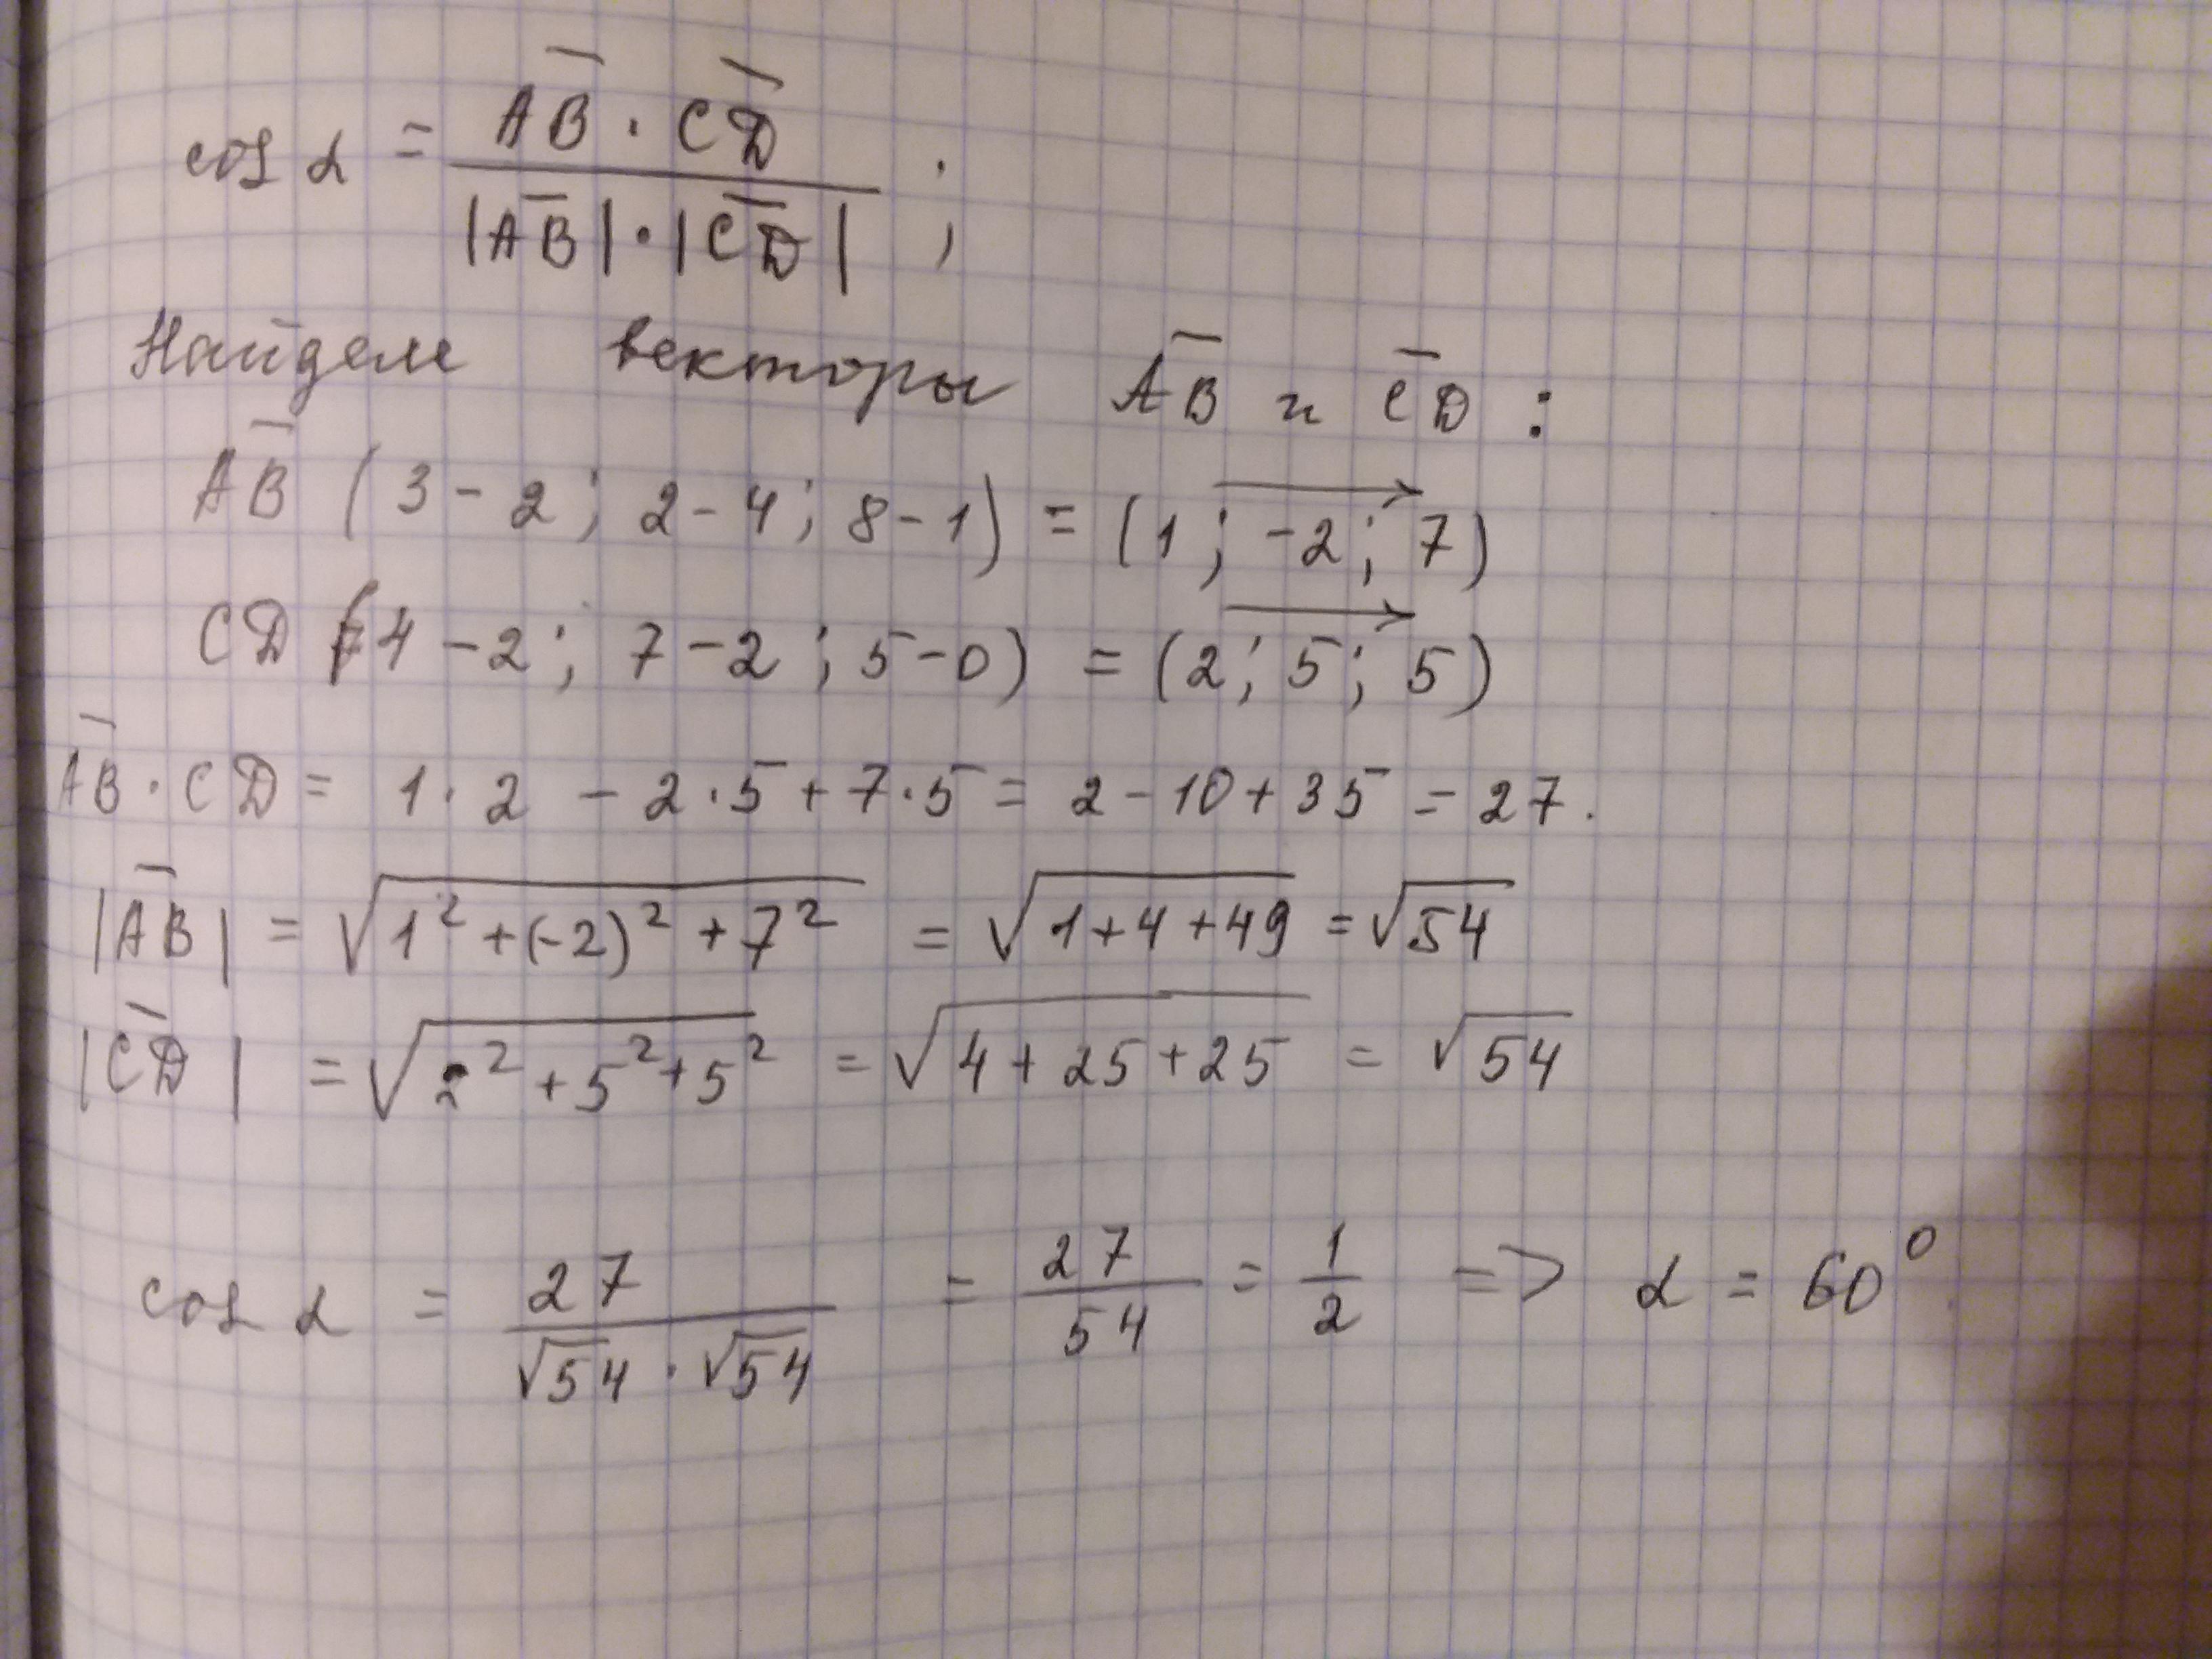 cos α = (AB · CD) / (|AB| · |CD|) ;
Найдем векторы AB и CD :
AB (3 - 2 ; 2 - 4 ; 8 - 1) = (1 ; -2 ; 7)
CD (4 - 2 ; 7 - 2 ; 5 - 0) = (2 ; 5 ; 5)
AB · CD = 1 · 2 - 2 · 5 + 7 · 5 = 2 - 10 + 35 = 27.
|AB| = √(1² + (-2)² + 7²) = √(1 + 4 + 49) = √54
|CD| = √(2² + 5² + 5²) = √(4 + 25 + 25) = √54
cos α = 27 / (√54 · √54) = 27/54 = 1/2 => α = 60°